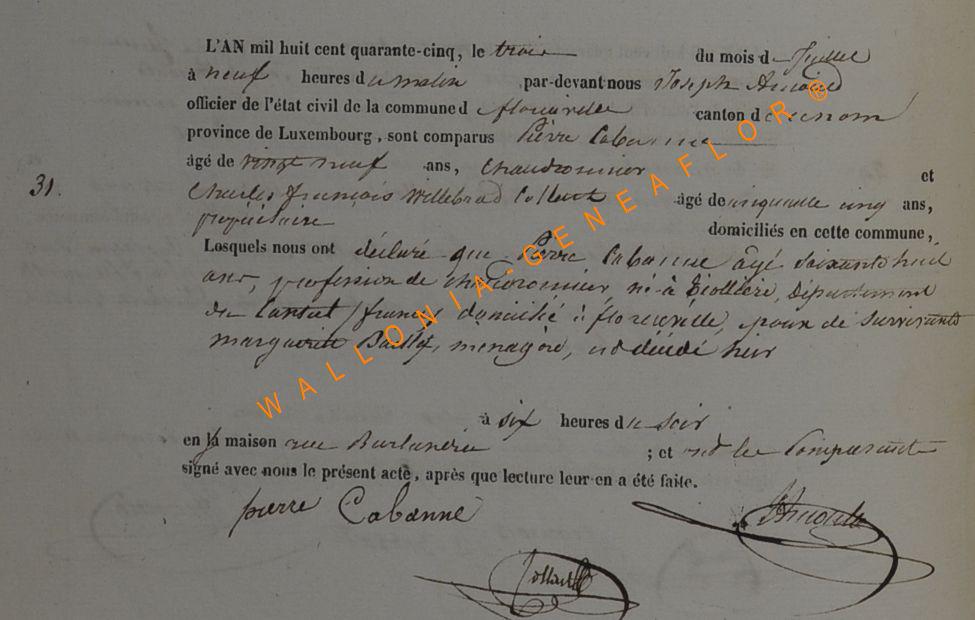 L'AN mil huit cent quarante-cinq, le trois du mois d Juillet
à neuf heures du matin par-devant nous Joseph
officier de l'état civil de la commune d florenville canton d
province de Luxembourg, sont comparus Pierre Cabanne
âgé de vingt neuf ans, Chaudronnier et
31.
Charles françois Willebrod Collart âgé de cinquante cinq ans,
propriétaire domiciliés en cette commune,
Lesquels nous ont déclaré que Pierre Cabanne âgé soixante huit
ans, profession de chaudronnier, né à Dépardement
du Cantal (france) domicilié à florenville, époux de survivante
marguerite ménagère, est décédé hier
à six heures du soir
en la maison rue ; et ont les Comparants
signé avec nous le présent acte, après que lecture leur en a été faite.
pierre Cabanne
Collart
WALLONIA-GENEAFLOR®